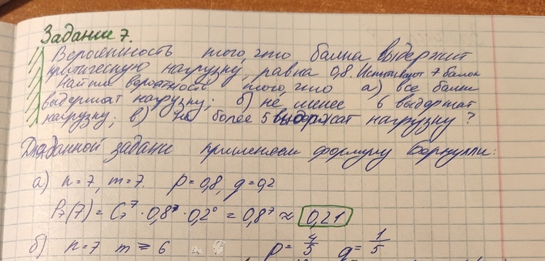 Задание 7.
Вероятность того, что балка выдержит
критическую нагрузку, равна 0,8. Испытывают 7 балок
Найти вероятность того, что а) все балки
выдержат нагрузку; б) не менее 6 выдержат
нагрузку; в) не более 5 выдержат нагрузку?
Для данной задачи применяем формулу Бернулли:
а) n=7, m=7. p=0,8, q=0,2
P₇(7) = C₇⁷ · 0,8⁷ · 0,2⁰ = 0,8⁷ ≈ 0,21
б) n=7 m = 6 p = 4/5 q = 1/5